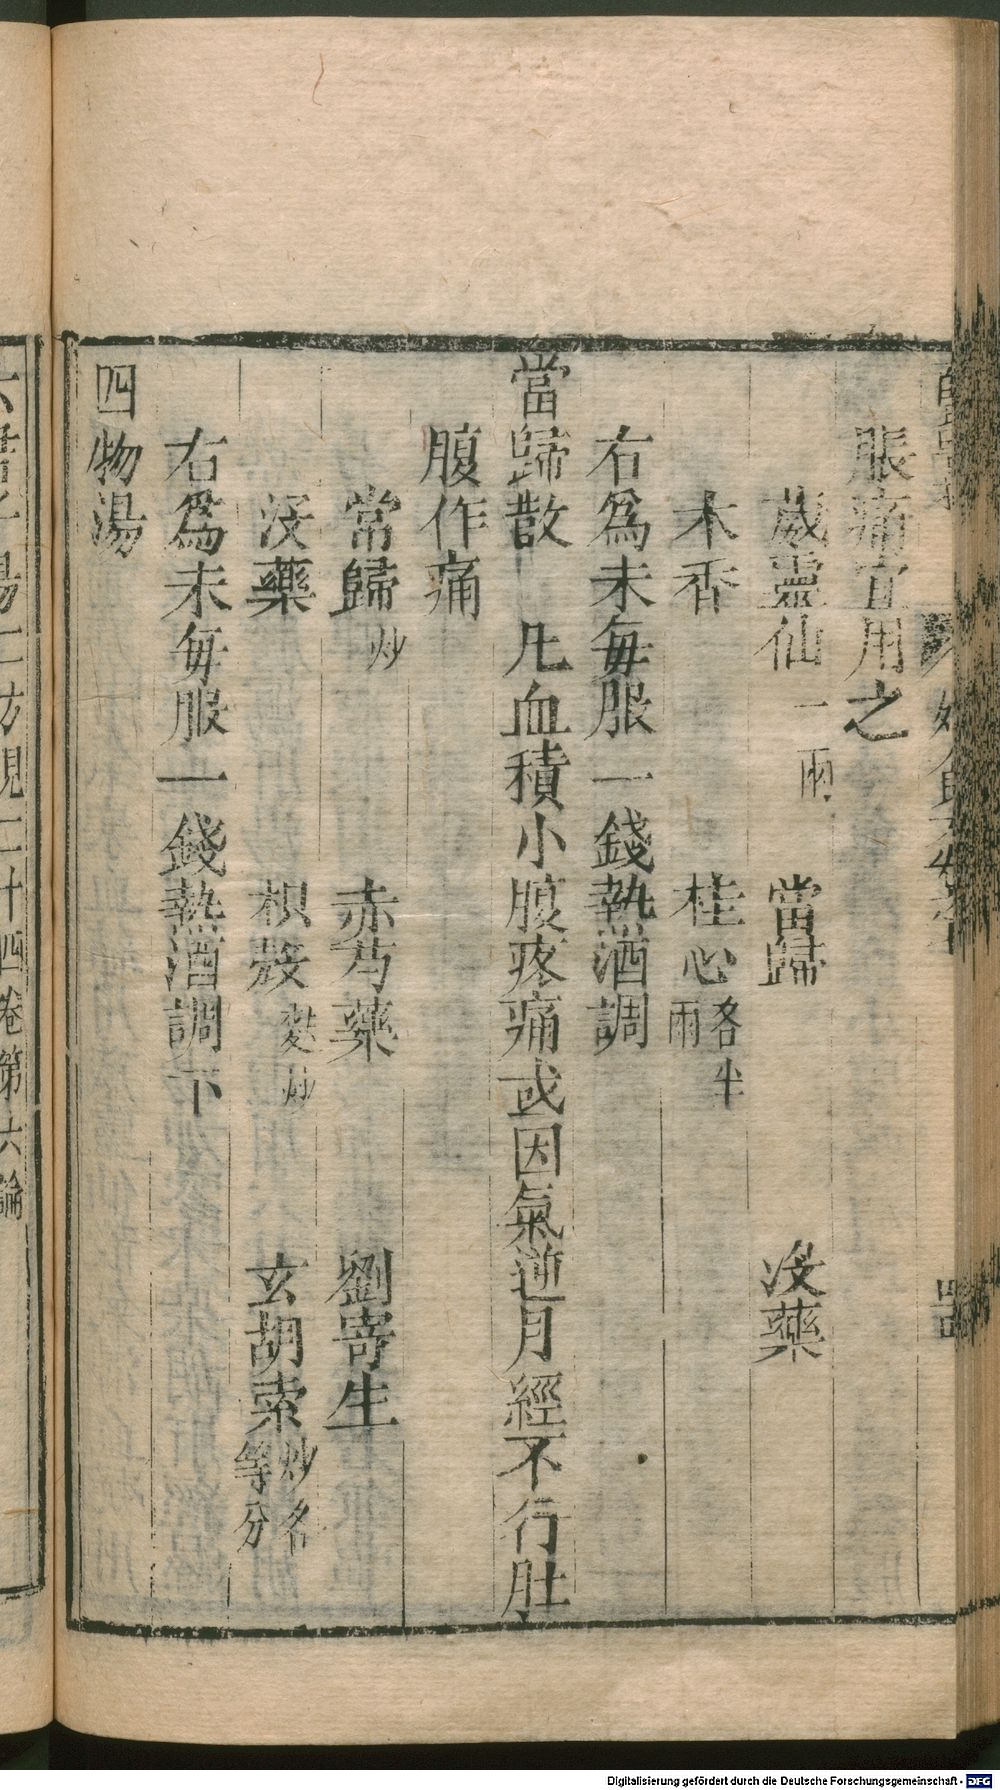 脹痛宜用之
威靈仙一兩 當歸 沒藥
木香 桂心各半兩
右爲末每服一錢熱酒調
當歸散 凡血積小腹疼痛或因氣逆月經不行肚
腹作痛
當歸炒 赤芍藥 劉寄生
沒藥 枳殼麩炒 玄胡索炒各等分
右爲末每服一錢熱酒調下
四物湯
湯二方見二十四卷第六論
Digitalisierung gefördert durch die Deutsche Forschungsgemeinschaft - DFG